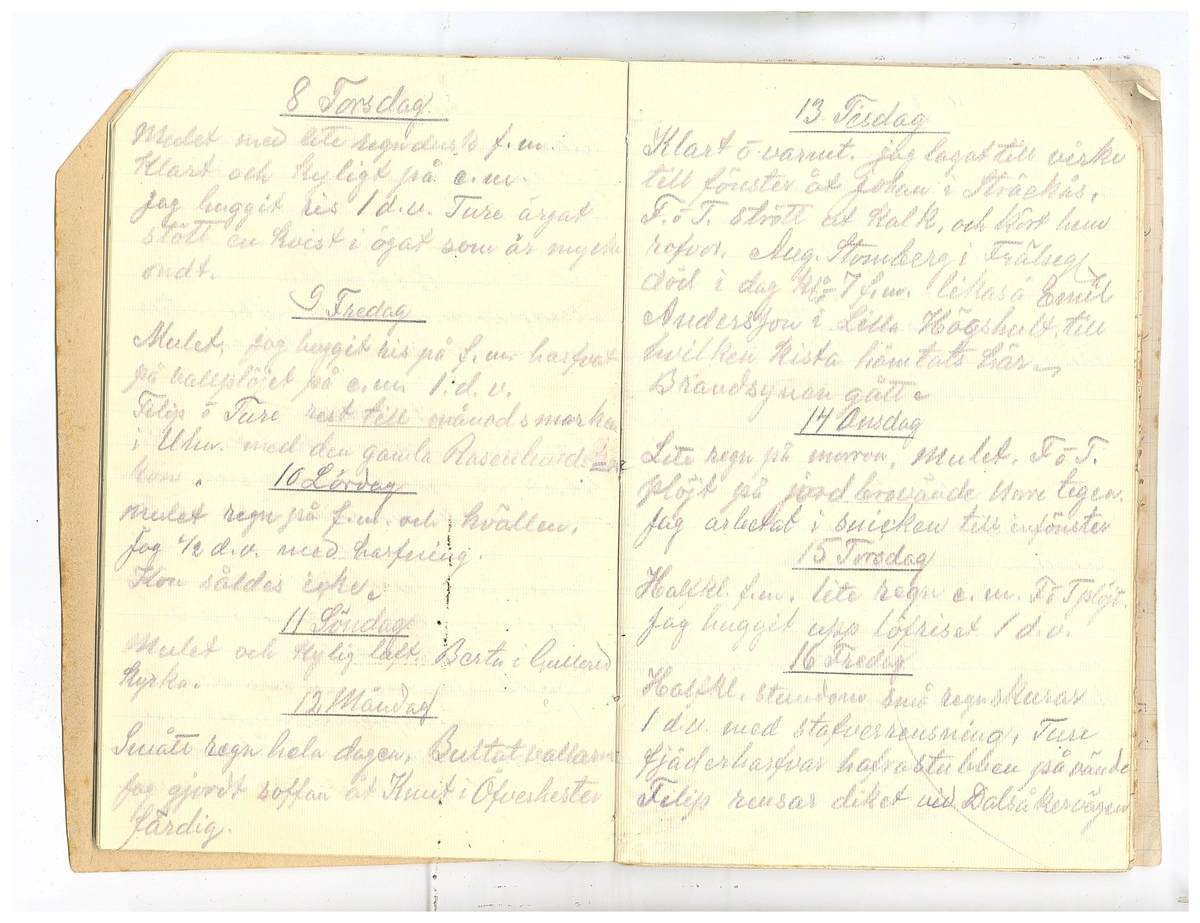 8 Torsdag.
Mulet med lite regndusk f.m.
Klart och kyligt på e.m.
jag huggit ris 1 d.v. Ture
stött en kvist i ögat som är mycke
ondt.
9 Fredag
Mulet. Jag huggit ris på f.m. harfvat
på vallplöjet på e.m. 1. d. v.
Filip ö Ture rest till månadsmarken
i Uhn. med den gamla Rosenlunds
10 Lördag
mulet regn på f.m. och kvällen.
Jag 1/2 d.v. med harfning.
Kon såldes icke.
11 Söndag
Mulet och kylig luft. Berta i Gullered
kyrka.
12 Måndag
Smått regn hela dagen. Bultat vallarne
Jag gjordt soffan åt Knut i Öfverhester
färdig.
13 Tisdag
Klart ö varmt. jag lagat till virke
till fönster åt Johan i Sträckås.
F. ö T. strött ut kalk, och kört hem
rofvor. Aug. Stomberg i Frälseg
död i dag kl. 7 f.m. likaså Emil
Andersson i Lilla Högshult, till
hvilken kista hämtats här
Brandsynen gått.
14 Onsdag
Lite regn på morron. Mulet. F ö T.
plöjt på jordbrovände Norre tegen.
Jag arbetat i snicken till infönster
15 Torsdag
Halfkl. f.m. lite regn e.m. F ö T plöjt.
Jag huggit upp löfriset 1 d.v.
16 Fredag
Halfkl. stundom små regnskurar
1 d.v. med stafverensning. Ture
fjäderharfvar hafrastubben på vände
Filip rensar diket vid Dalsåkervägen